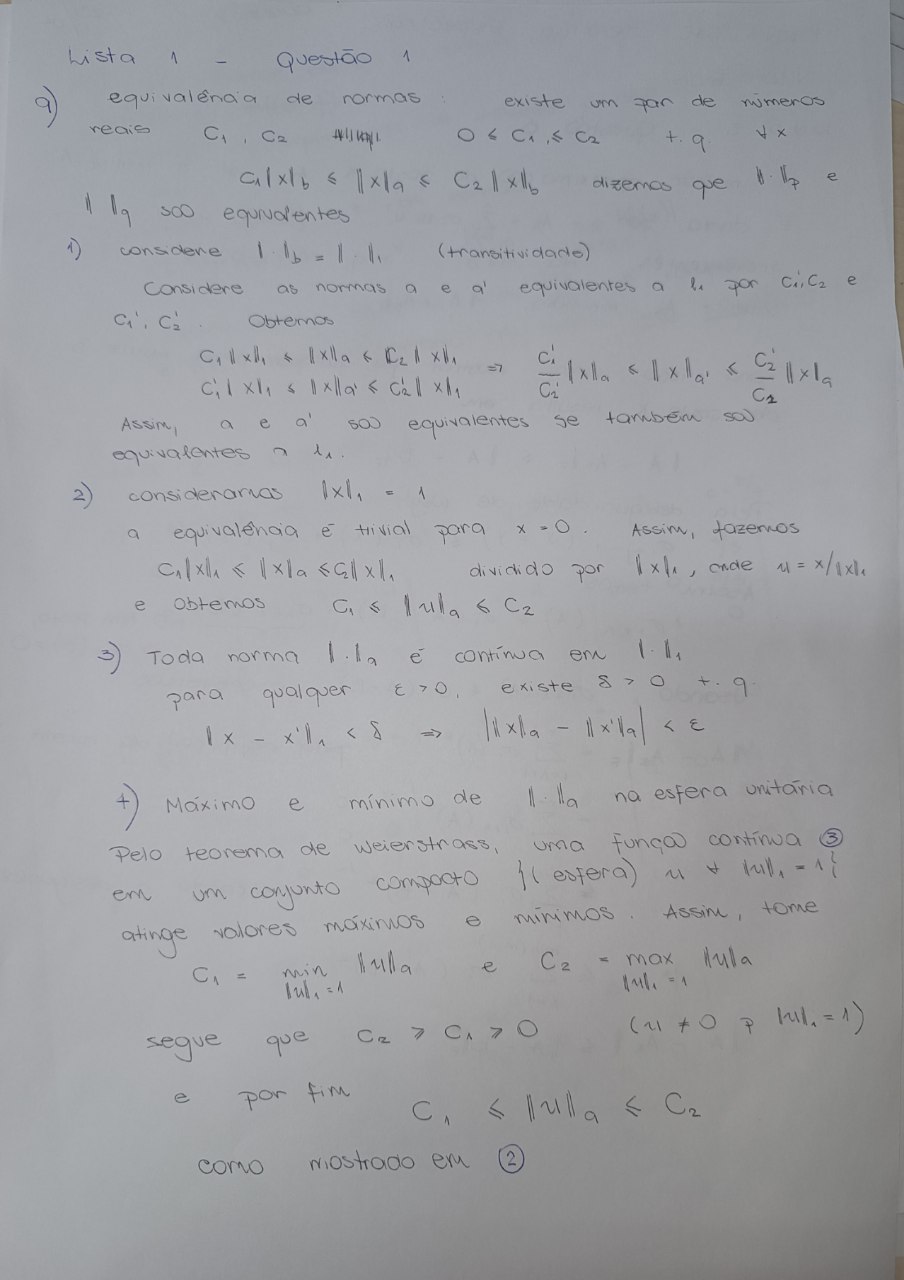 Lista 1 - Questão 1
a) equivalência de normas: existe um par de números
reais C₁, C₂ 0 < C₁ ≤ C₂ t.q. ∀x
C₁‖x‖_b ≤ ‖x‖_a ≤ C₂‖x‖_b dizemos que ‖·‖_p e
‖ ‖_q são equivalentes
1) considere ‖·‖_b = ‖·‖₁ (transitividade)
Considere as normas a e a' equivalentes a l₁ por C₁, C₂ e
C₁', C₂'. Obtemos
C₁‖x‖₁ ≤ ‖x‖_a ≤ C₂‖x‖₁
C₁'‖x‖₁ ≤ ‖x‖_a' ≤ C₂'‖x‖₁ ⇒ C₁'/C₂' ‖x‖_a ≤ ‖x‖_a' ≤ C₂'/C₂ ‖x‖_a
Assim, a e a' são equivalentes se também são
equivalentes a l₁.
2) consideramos ‖x‖₁ = 1
a equivalência é trivial para x = 0. Assim, fazemos
C₁‖x‖₁ ≤ ‖x‖_a ≤ C₂‖x‖₁ dividido por ‖x‖₁, onde u = x/‖x‖₁
e obtemos C₁ ≤ ‖u‖_a ≤ C₂
3) Toda norma ‖·‖_a é contínua em ‖·‖₁
para qualquer ε > 0, existe δ > 0 t.q.
‖x - x'‖₁ < δ ⇒ |‖x‖_a - ‖x'‖_a| < ε
4) Máximo e mínimo de ‖·‖_a na esfera unitária
Pelo teorema de Weierstrass, uma função contínua ③
em um conjunto compacto {(esfera) u ∀ ‖u‖₁ = 1}
atinge valores máximos e mínimos. Assim, tome
C₁ = min ‖u‖_a e C₂ = max ‖u‖_a
‖u‖₁=1 ‖u‖₁=1
segue que C₂ ≥ C₁ > 0 (u ≠ 0 p ‖u‖₁ = 1)
e por fim C₁ ≤ ‖u‖_a ≤ C₂
como mostrado em ②